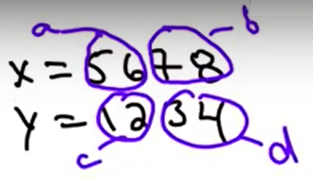 a b
x = 5678
y = 1234
c d